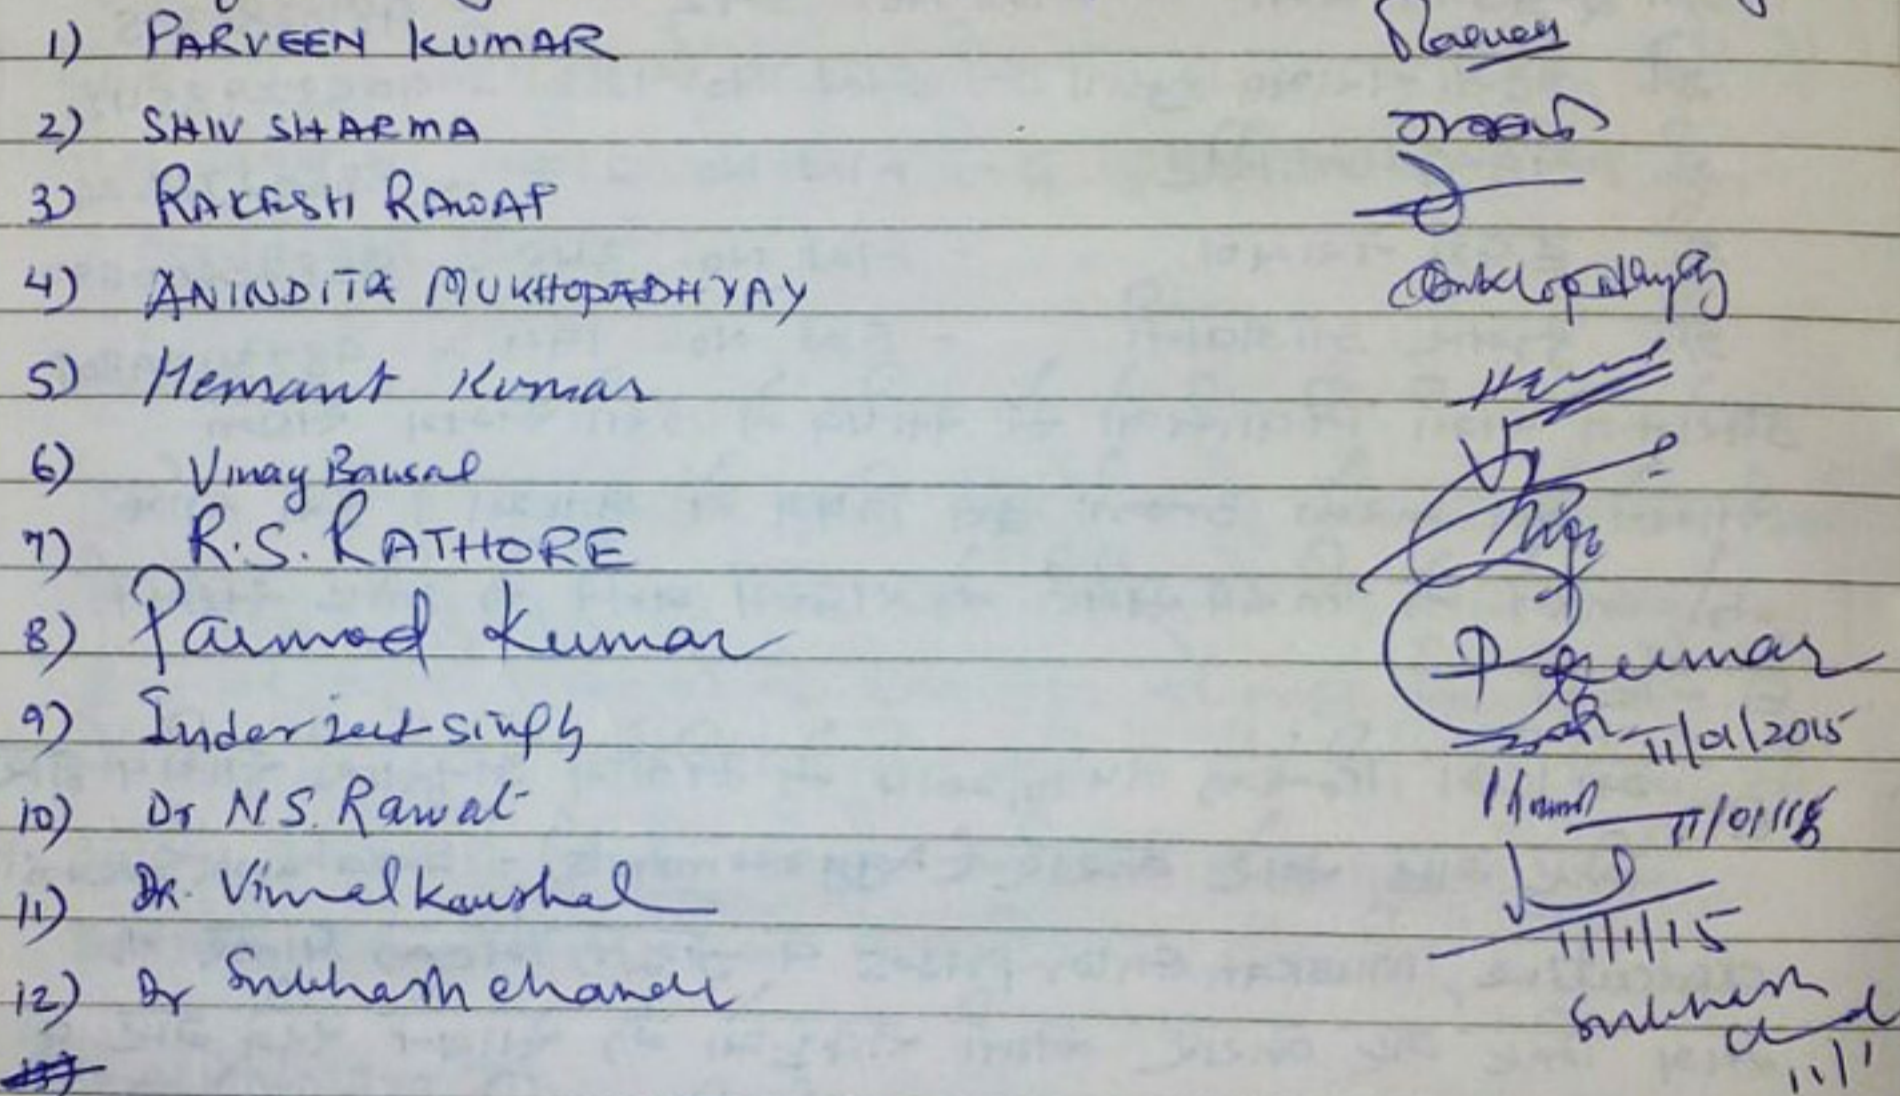 1) PARVEEN KUMAR
2) SHIV SHARMA
3) RAKESH RAWAT
4) ANINDITA MUKHOPADHYAY
5) Hemant Kumar
6) Vinay Bansal
7) R.S. RATHORE
8) Parmod Kumar PKumar
9) Inderjeet Singh 11/01/2015
10) Dr N.S. Rawat 11/01/15
11) Dr. Vimal Kaushal 11/1/15
12) Dr Subhash Chander Subhash
11/1